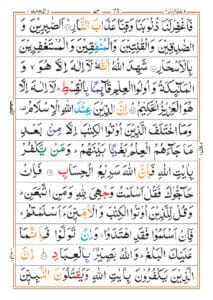 فَاغْفِرْلَنَا ذُنُوْبَنَا وَقِنَا عَذَابَ النَّارِ اَلصّٰبِرِيْنَ وَ
الصّٰدِقِيْنَ وَالْقٰنِتِيْنَ وَالْمُنْفِقِيْنَ وَالْمُسْتَغْفِرِيْنَ
بِالْاَسْحَارِ شَهِدَ اللّٰهُ اَنَّهٗ لَآ اِلٰهَ اِلَّا هُوَ وَ
الْمَلٰٓئِكَةُ وَاُولُوا الْعِلْمِ قَآئِمًا بِالْقِسْطِ لَآ اِلٰهَ اِلَّا
هُوَ الْعَزِيْزُ الْحَكِيْمُ اِنَّ الدِّيْنَ عِنْدَ اللّٰهِ الْاِسْلَامُ
وَمَا اخْتَلَفَ الَّذِيْنَ اُوْتُوا الْكِتٰبَ اِلَّا مِنْۢ بَعْدِ
مَا جَآءَهُمُ الْعِلْمُ بَغْيًاۢ بَيْنَهُمْ وَمَنْ يَّكْفُرْ
بِاٰيٰتِ اللّٰهِ فَاِنَّ اللّٰهَ سَرِيْعُ الْحِسَابِ فَاِنْ
حَآجُّوْكَ فَقُلْ اَسْلَمْتُ وَجْهِيَ لِلّٰهِ وَمَنِ اتَّبَعَنِ
وَقُلْ لِّلَّذِيْنَ اُوْتُوا الْكِتٰبَ وَالْاُمِّيّٖنَ ءَاَسْلَمْتُمْ
فَاِنْ اَسْلَمُوْا فَقَدِ اهْتَدَوْا وَاِنْ تَوَلَّوْا فَاِنَّمَا
عَلَيْكَ الْبَلٰغُ وَاللّٰهُ بَصِيْرٌۢ بِالْعِبَادِ اِنَّ
الَّذِيْنَ يَكْفُرُوْنَ بِاٰيٰتِ اللّٰهِ وَيَقْتُلُوْنَ النَّبِيّٖنَ